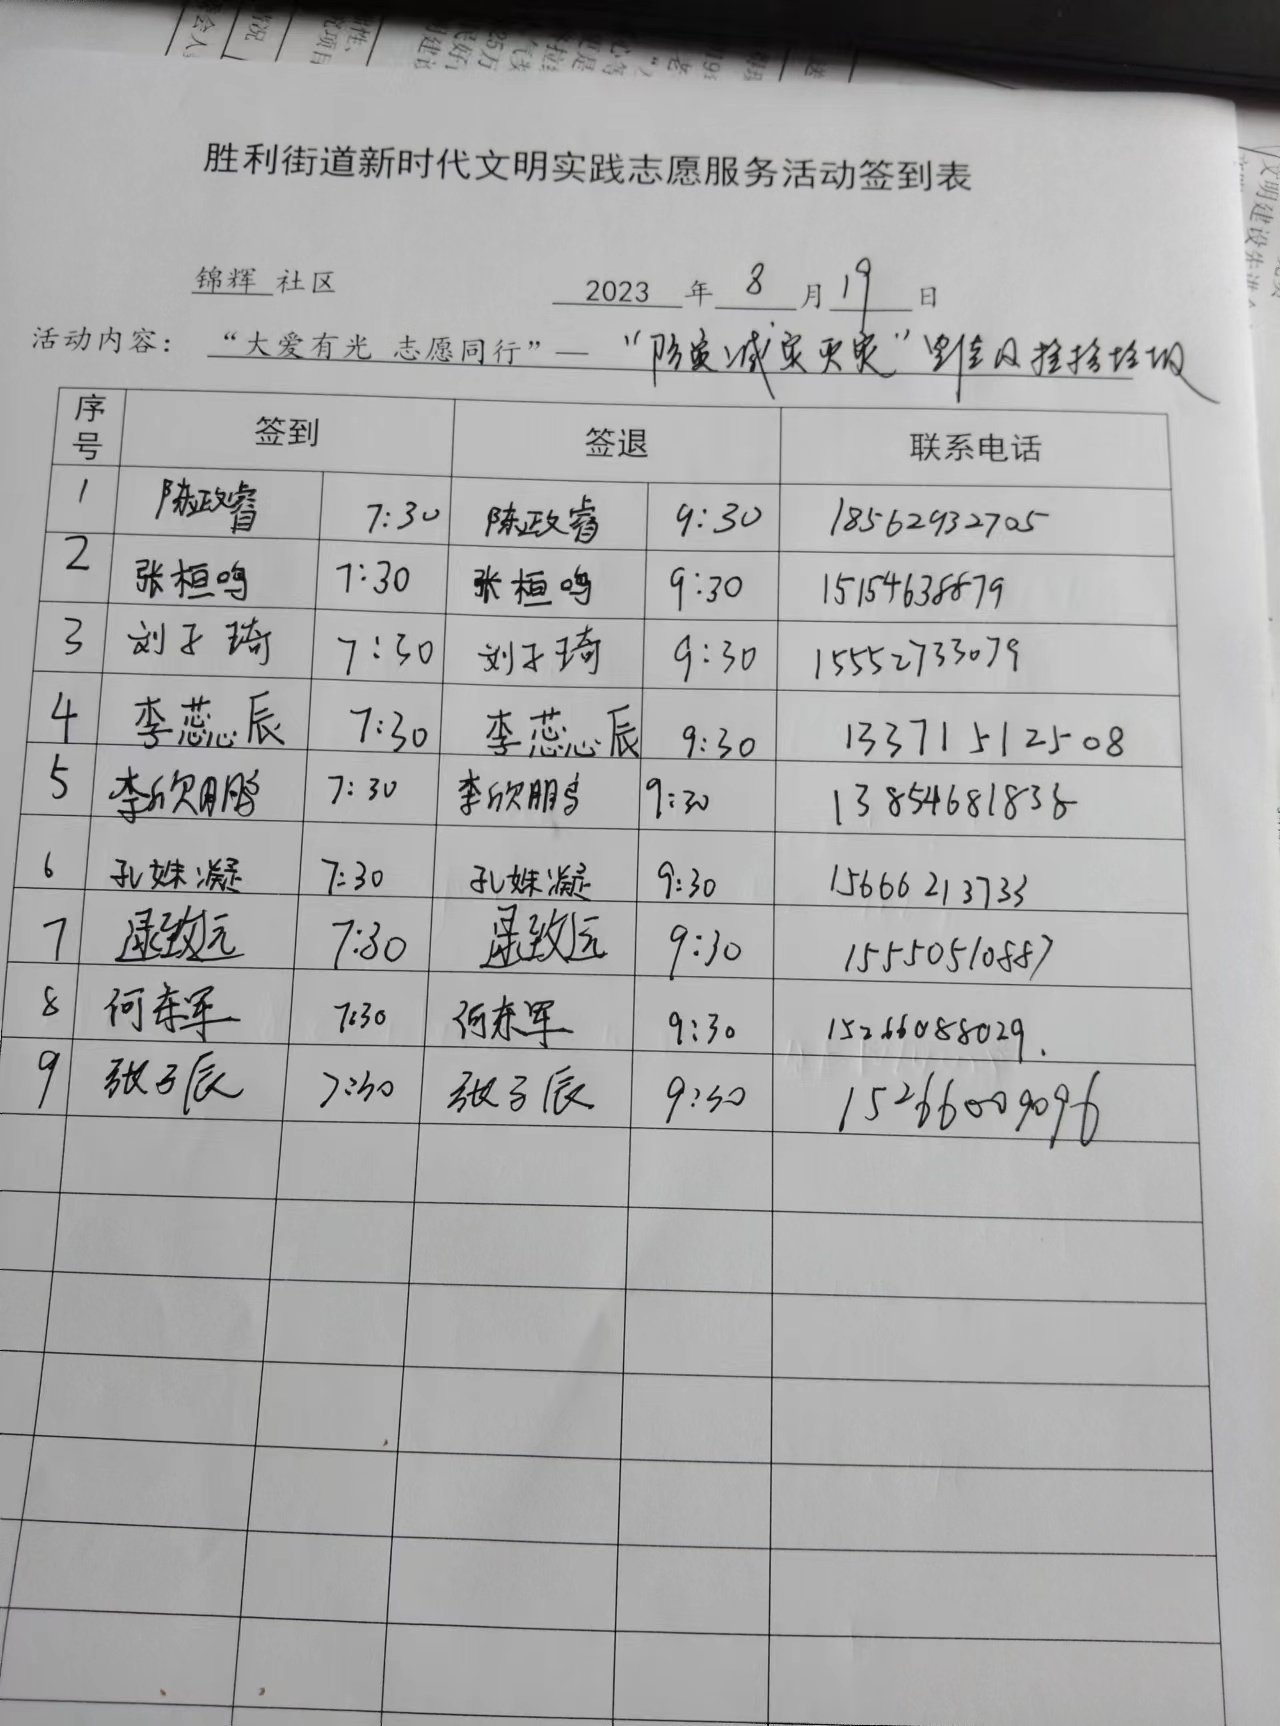 胜利街道新时代文明实践志愿服务活动签到表
锦辉 社区 2023 年 8 月 19 日
活动内容： “大爱有光 志愿同行”— “防灾减灾灭灾” 捡拾垃圾
序号 签到 签退 联系电话
1 陈政睿 7:30 陈政睿 9:30 18562932705
2 张桓鸣 7:30 张桓鸣 9:30 15154638879
3 刘子琦 7:30 刘子琦 9:30 15552733079
4 李蕊辰 7:30 李蕊辰 9:30 13371512508
5 李欣鹏 7:30 李欣鹏 9:30 13854681838
6 孔姝凝 7:30 孔姝凝 9:30 15666213733
7 逯致远 7:30 逯致远 9:30 15550510887
8 何东军 7:30 何东军 9:30 15266088029.
9 张子辰 7:30 张子辰 9:30 15266009096